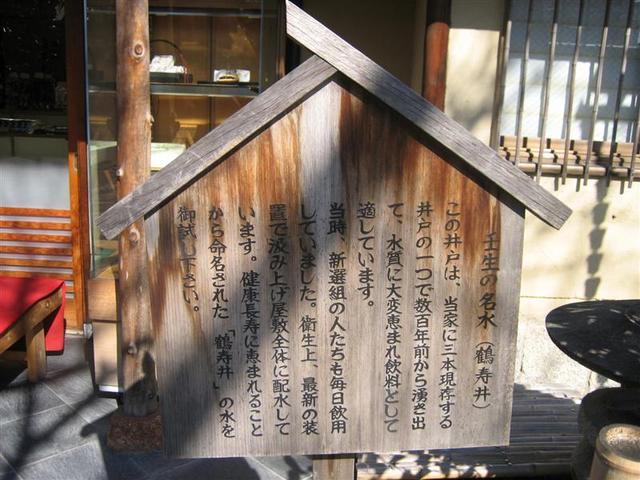 壬生の名水（鶴寿井）
この井戸は、当家に三本現存する
井戸の一つで数百年前から湧き出
て、水質に大変恵まれ飲料として
適しています。
当時、新選組の人たちも毎日飲用
していました。衛生上、最新の装
置で汲み上げ屋敷全体に配水して
います。健康長寿に恵まれること
から命名された「鶴寿井」の水を
御試し下さい。